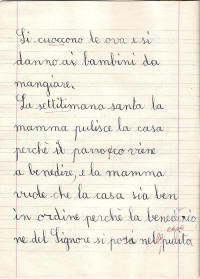 Si cuoccono le ova e si
danno ai bambini da
mangiare.
La settitimana santa la
mamma pulisce la casa
perchè il parroco viene
a benedire, e la mamma
vuole che la casa sia ben
in ordine perchè la benedizio
ne del Signore si posa nel pulito.